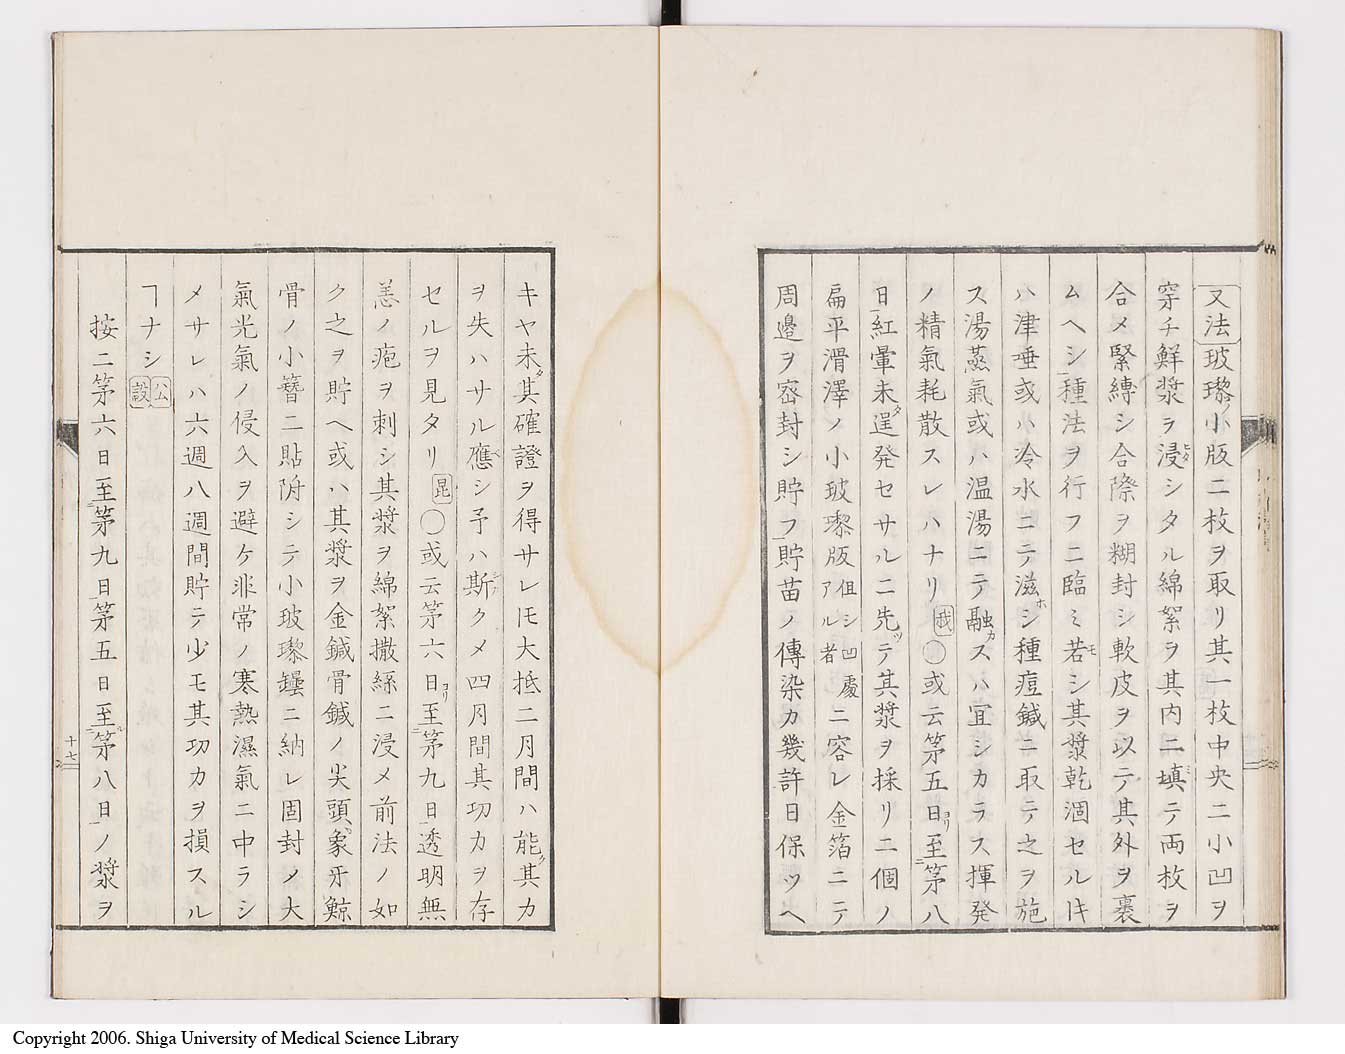 又法玻瓈小版二枚ヲ取リ其一枚中央ニ小凹ヲ
穿チ鮮漿ヲ浸シタル綿絮ヲ其内ニ塡テ両枚ヲ
合メ緊縛シ合際ヲ糊封シ軟皮ヲ以テ其外ヲ裹
ムヘシ種法ヲ行フニ臨ミ若シ其漿乾涸セル𪜈
ハ津唾或ハ冷水ニテ滋シ種痘鍼ニ取テ之ヲ施
ス湯蒸氣或ハ温湯ニテ融スハ宜シカラス揮発
ノ精氣耗散スレハナリ 我 〇或云苐五日ヨリ至苐八
日紅暈未タ逞発セサルニ先ツテ其漿ヲ採リ二個ノ
扁平滑澤ノ小玻瓈版 但シ凹處アル者 ニ容レ金箔ニテ
周邊ヲ密封シ貯フ貯苗ノ傳染力幾許日保ツヘ
キヤ未タ其確證ヲ得サレ𪜈大抵二月間ハ能ク其力
ヲ失ハサル應シ予ハ斯クメ四月間其功力ヲ存
セルヲ見タリ 昆 〇或云苐六日ヨリ至苐九日透明無
恙ノ疱ヲ刺シ其漿ヲ綿絮撒絲ニ浸メ前法ノ如
ク之ヲ貯ヘ或ハ其漿ヲ金鍼骨鍼ノ尖頭象牙鯨
骨ノ小簪ニ貼附シテ小玻瓈罎ニ納レ固封メ大
氣光氣ノ侵入ヲ避ケ非常ノ寒熱濕氣ニ中ラシ
メサレハ六週八週間貯テ少モ其功力ヲ損スル
ヿナシ 公設
按ニ苐六日至苐九日苐五日至苐八日ノ漿ヲ
十七
Copyright 2006. Shiga University of Medical Science Library